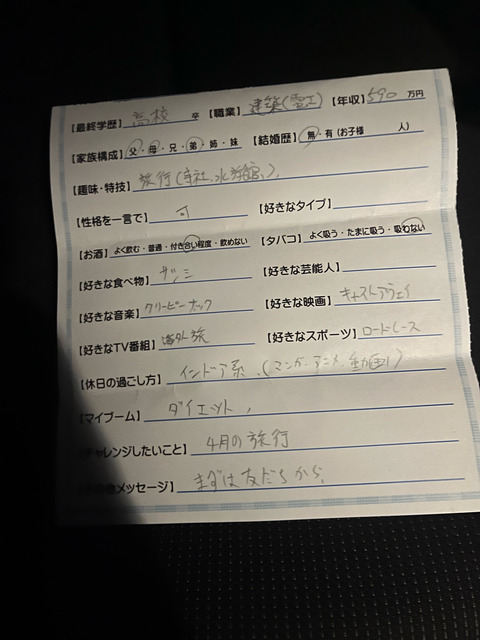 【最終学歴】高校 卒 【職業】建築(電工) 【年収】590 万円
【家族構成】父・母・兄・弟・姉・妹 【結婚歴】無・有(お子様 人)
【趣味・特技】旅行(寺社、水族館、)
【性格を一言で】 【好きなタイプ】
【お酒】よく飲む・普通・付き合い程度・飲めない 【タバコ】よく吸う・たまに吸う・吸わない
【好きな食べ物】サシミ 【好きな芸能人】
【好きな音楽】クリーピーナッツ 【好きな映画】キャストアウェイ
【好きなTV番組】海外旅 【好きなスポーツ】ロードレース
【休日の過ごし方】インドア系、(マンガ・アニメ・動画)
【マイブーム】ダイエット、
チャレンジしたいこと】4月の旅行
メッセージ】まずは友だちから、